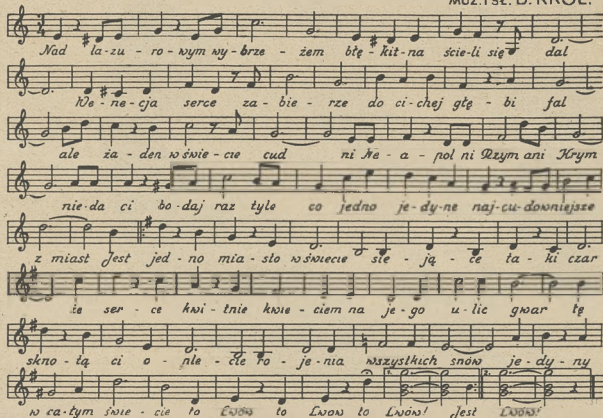 MUZ. I SŁ. D. KRÓL.
Nad la-zu-ro-wym wy-brze-żem błę-kit-na ście-li się dal
We-ne-cja serce za-bie-rze do ci-chej głę-bi fal
ale ża-den w świe-cie cud ni Ne-a-pol ni Rzym ani Krym
nie-da ci bo-daj raz tyle co jedno je-dy-ne naj-cu-downiejsze
z miast Jest jed-no mia-sto w świecie sie-ją-ce ta-ki czar
że ser-ce kwi-tnie kwie-ciem na je-go u-lic gwar tę
skno-tą ci o-ple-cie ro-je-nia wszystkich snów je-dy-ny
w ca-łym świe-cie to Lwów to Lwów to Lwów! Jest Lwów!